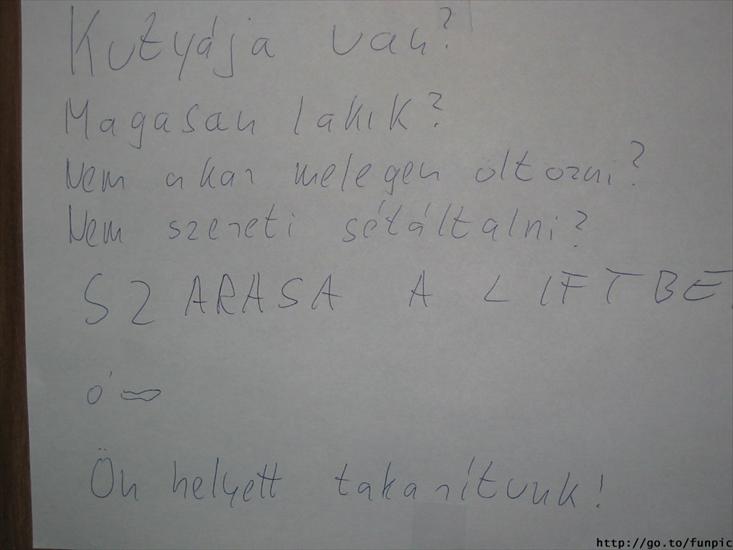 Kutyája van?
Magasan lakik?
Nem akar melegen öltözni?
Nem szereti sétáltatni?
SZARASA A LIFTBE
Ön helyett takarítunk!
http://go.to/funpic